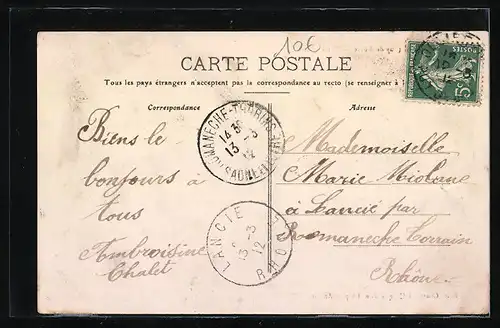 10€
CARTE POSTALE
Tous les pays étrangers n'acceptent pas la correspondance au recto (se renseigner à l
Correspondance
Adresse
Biens le
bonjours à
tous
Ambroisine
Chalet
Mademoiselle
Marie Miolane
à Lancié par
Romaneche Torrain
Rhône
ROMANECHE-THORINS
14 35
13 -3
12
SAONE-ET-LOIRE
LANCIE
13 -3
12
RHONE
5c
POSTES